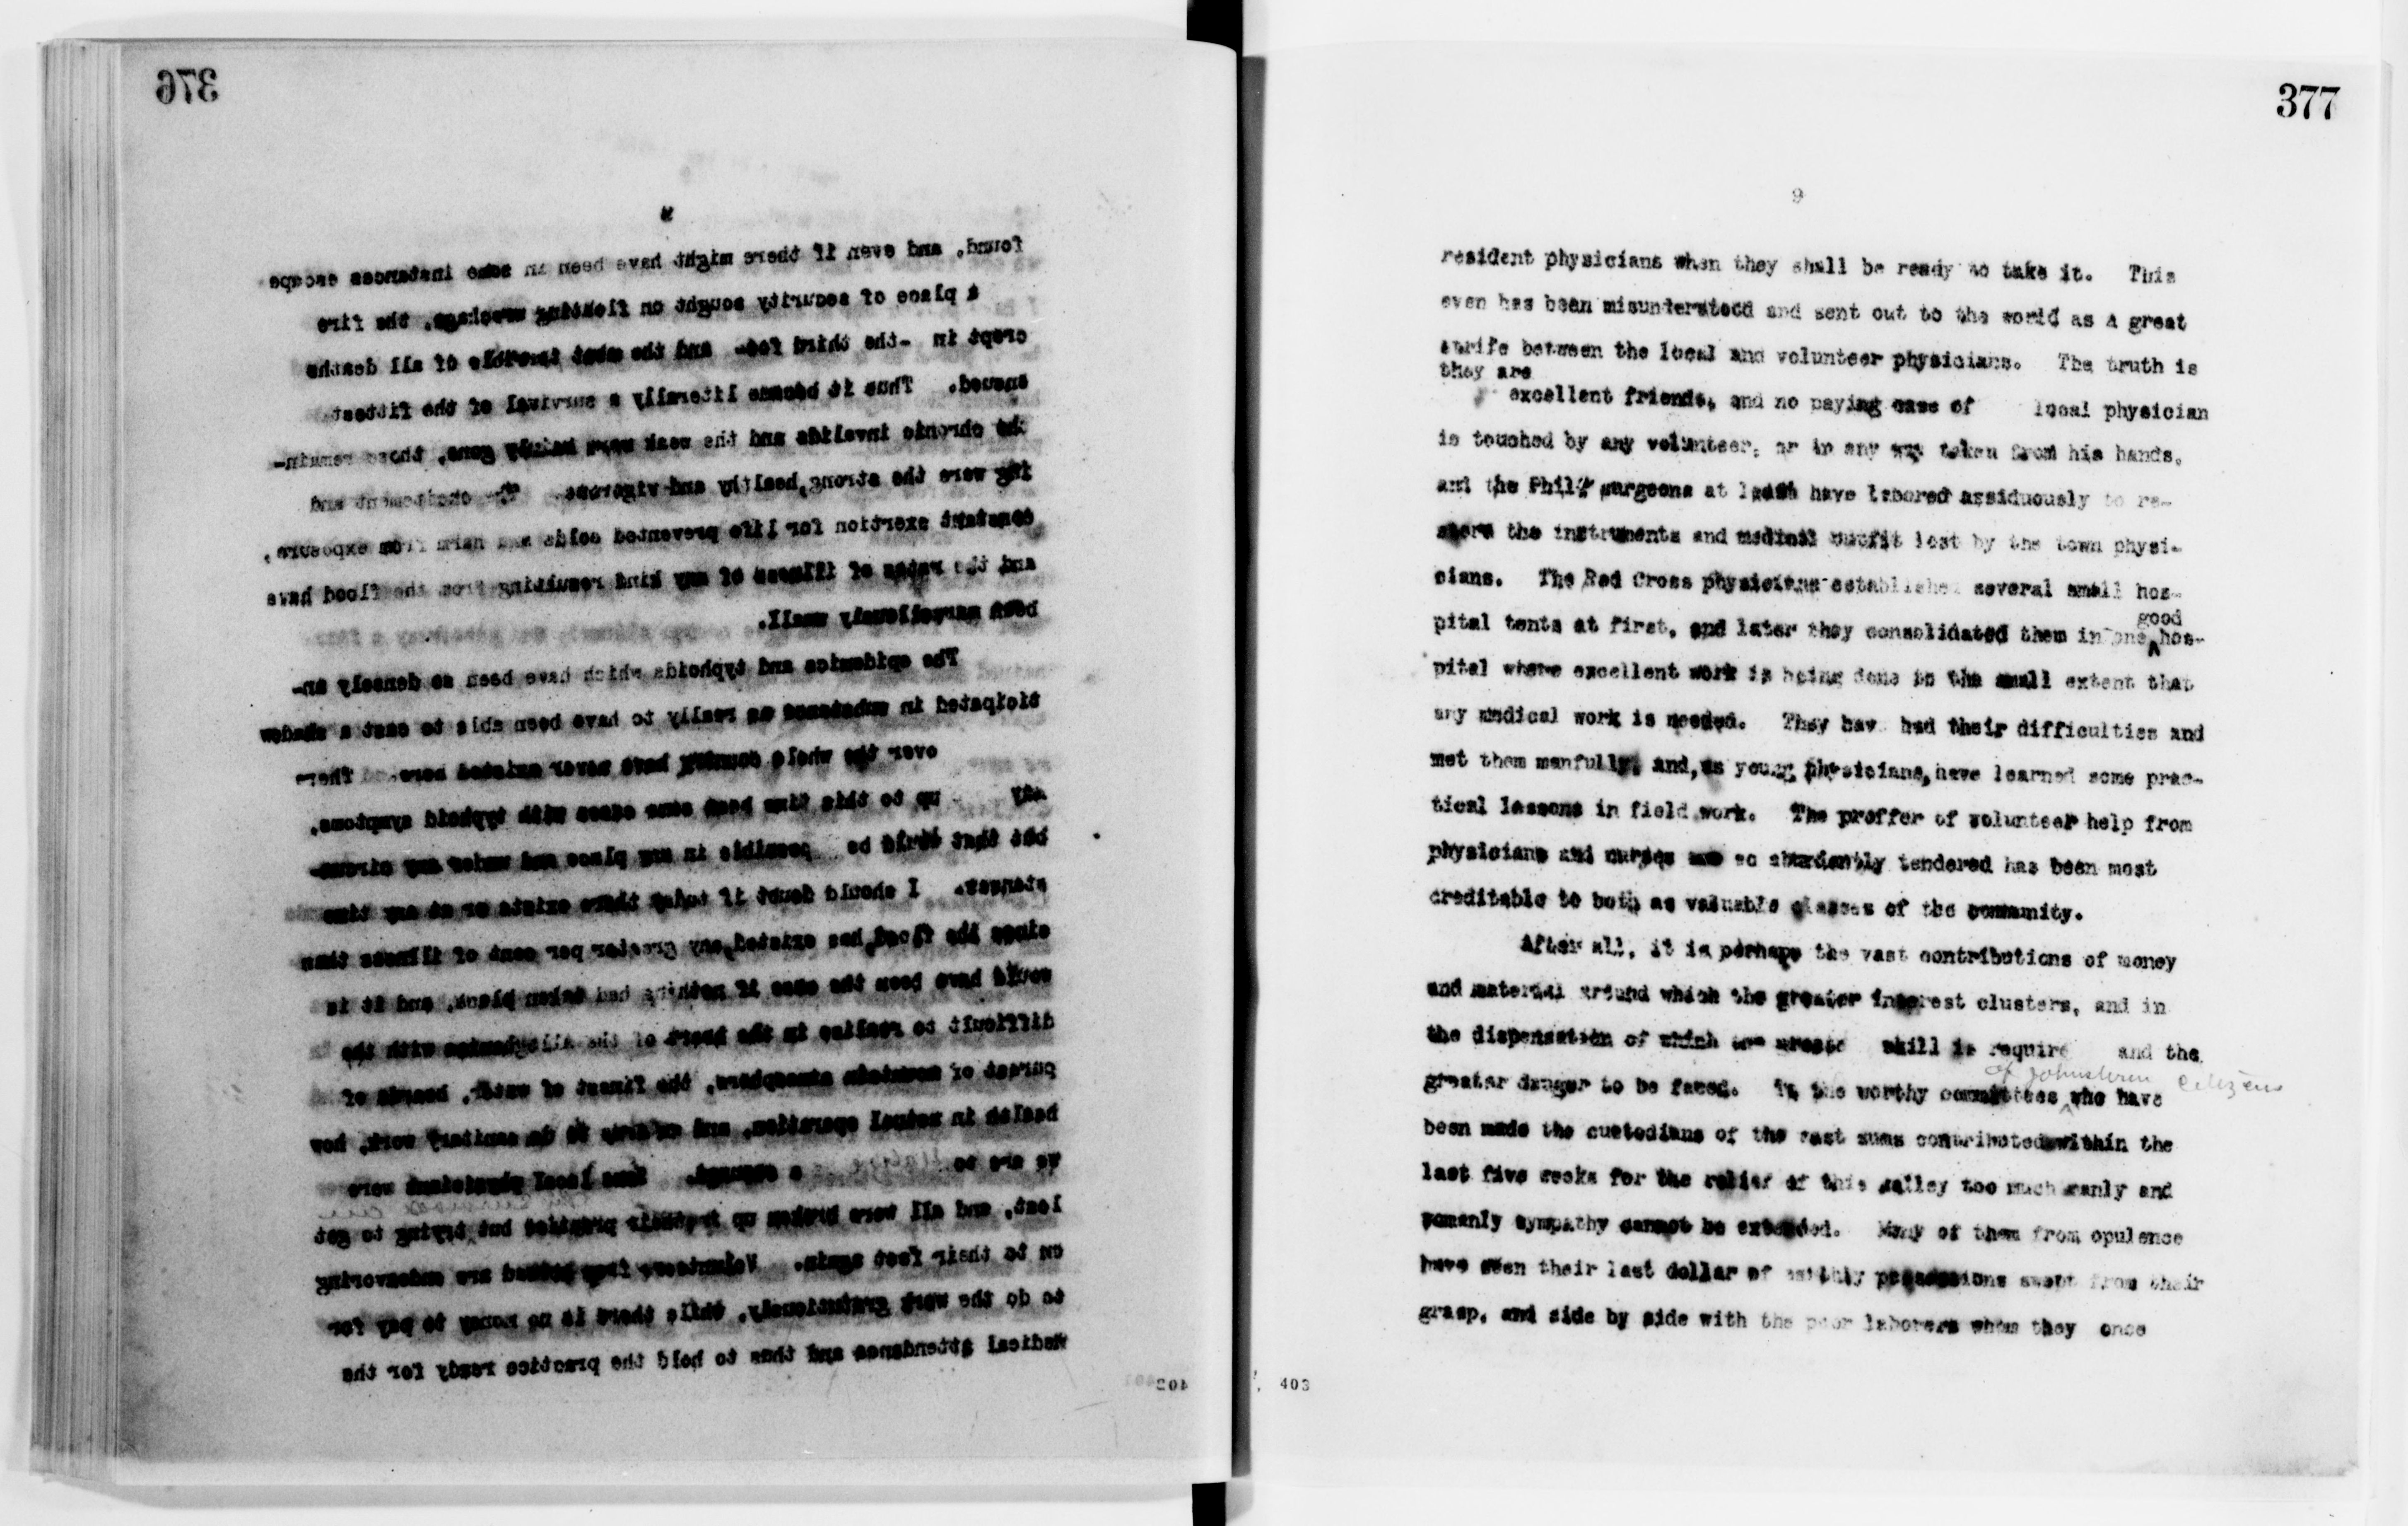 376
found, and even if there might have been in some instances escape
a place of security sought on floating wreckage, the fire
crept in -the third foe- and the most terrible of all deaths
ensued. Thus it became literally a survival of the fittest
the chronic invalids and the weak were mainly gone, those remain-
ing were the strong, healthy and vigorous. The excitement and
constant exertion for life prevented colds and harm from exposure,
and the rates of illness of any kind resulting from the flood have
been marvellously small.
The epidemics and typhoids which have been so densely an-
ticipated in substance as really to have been able to cast a shadow
over the whole country have never existed here. There
may up to this time been some cases with typhoid symptoms,
but that would be possible in any place and under any circum-
stances. I should doubt if today there exists or at any time
since the flood, has existed, any greater per cent of illness than
would have been the case if nothing had taken place, and it is
difficult to realize in the heart of the Alleghenies with the
purest of mountain atmosphere, the finest of water, boards of
health in actual operation, and to do sanitary work, how
we are to a Some local physicians were
lost, and all were broken up in their practice but trying to get
on to their feet again. Volunteers are endeavoring
to do the work gratuitously, while there is no money to pay for
medical attendance and thus to hold the practice ready for the
402
377
9
resident physicians when they shall be ready to take it. This
even has been misunderstood and sent out to the world as a great
strife between the local and volunteer physicians. The truth is
they are
excellent friends, and no paying case of local physician
is touched by any volunteer, or in any way taken from his hands,
and the Phil'a surgeons at least have labored assiduously to re-
store the instruments and medical outfit lost by the town physi-
cians. The Red Cross physicians established several small hos-
good
pital tents at first, and later they consolidated them in one hos-
pital where excellent work is being done to the small extent that
any medical work is needed. They have had their difficulties and
met them manfully, and, as young physicians, have learned some prac-
tical lessons in field work. The proffer of volunteer help from
physicians and nurses so abundantly tendered has been most
creditable to both as valuable classes of the community.
After all, it is perhaps the vast contributions of money
and material around which the greater interest clusters, and in
the dispensation of which skill is require and the
of Johnstown citizens
greater danger to be faced. To the worthy committees who have
been made the custodians of the vast sums contributed within the
last five weeks for the relief of this valley too much manly and
womanly sympathy cannot be extended. Many of them from opulence
have seen their last dollar of earthly possessions swept from their
grasp, and side by side with the poor laborers whom they once
403